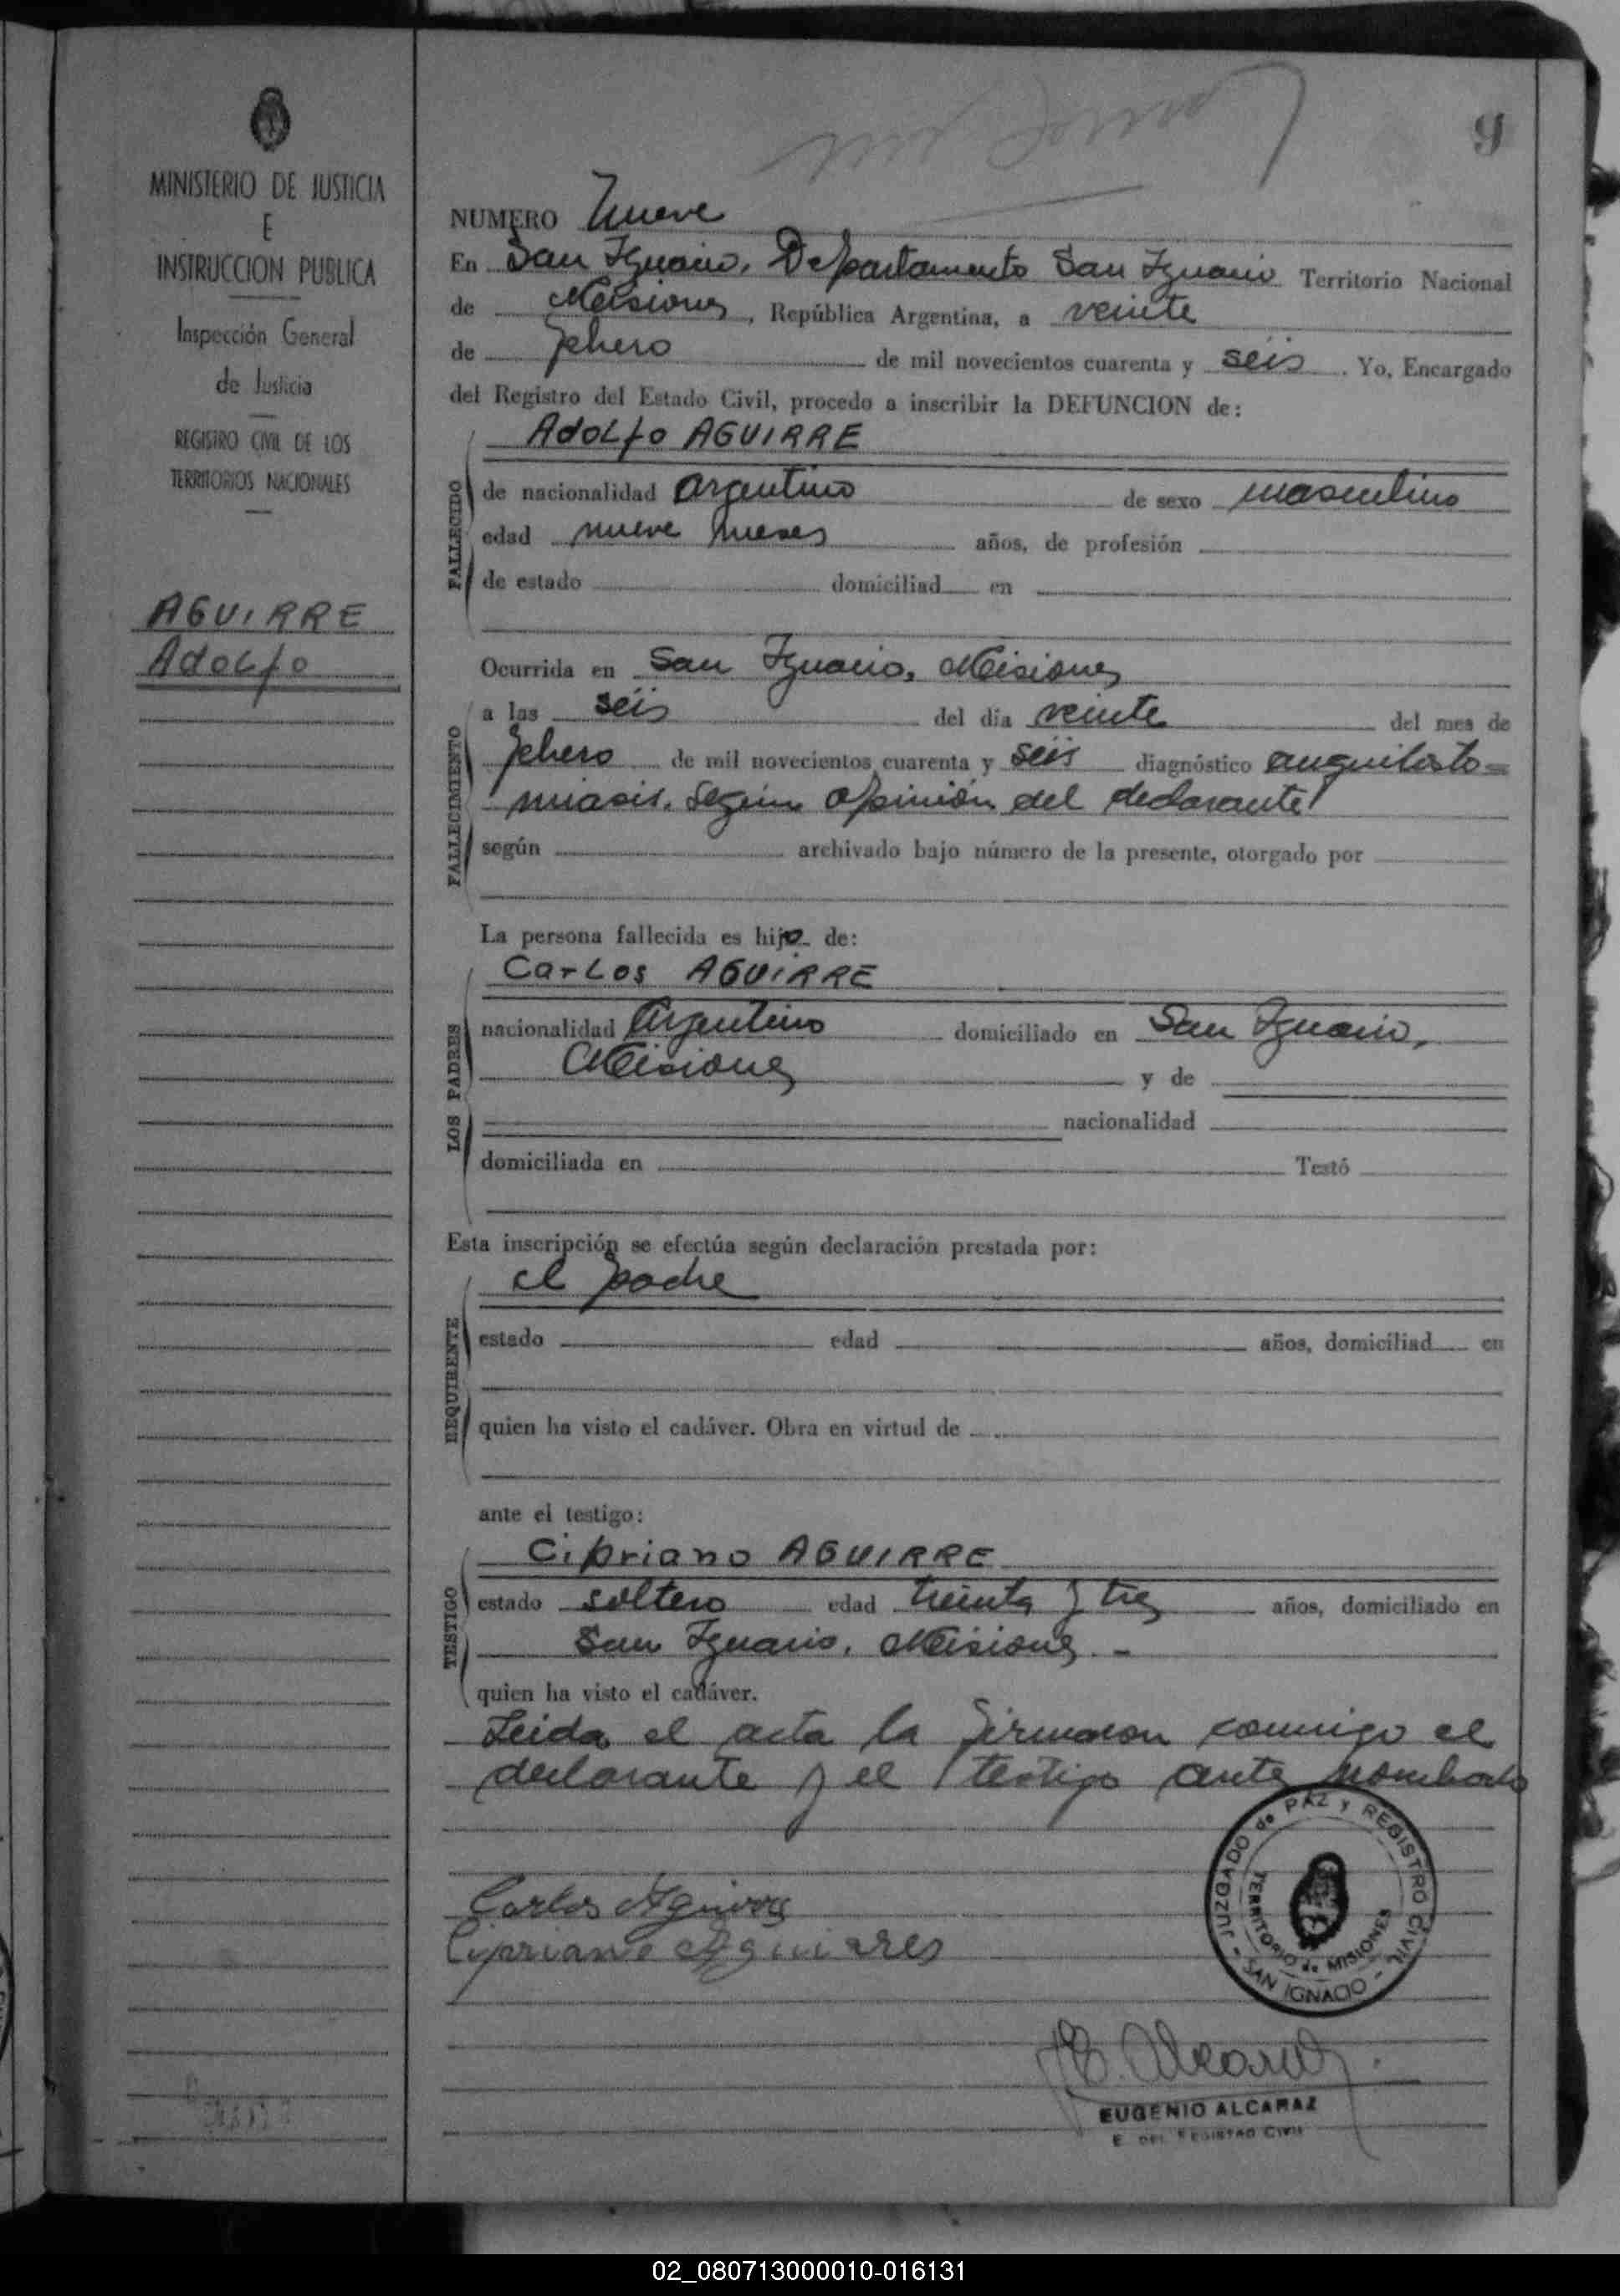 MINISTERIO DE JUSTICIA
E
INSTRUCCION PUBLICA
Inspección General
de Justicia
REGISTRO CIVIL DE LOS
TERRITORIOS NACIONALES
AGUIRRE
Adolfo
9
NUMERO Nueve
En San Ignacio, Departamento San Ignacio Territorio Nacional
de Misiones, República Argentina, a veinte
de febrero de mil novecientos cuarenta y seis. Yo, Encargado
del Registro del Estado Civil, procedo a inscribir la DEFUNCION de:
Adolfo AGUIRRE
FALLECIDO
de nacionalidad argentino de sexo masculino
edad nueve meses años, de profesión
de estado domiciliad en
Ocurrida en San Ignacio, Misiones
FALLECIMIENTO
a las seis del día veinte del mes de
febrero de mil novecientos cuarenta y seis diagnóstico anquilosto=
miasis. Según opinión del declarante
según archivado bajo número de la presente, otorgado por
La persona fallecida es hijo de:
Carlos AGUIRRE
LOS PADRES
nacionalidad Argentino domiciliado en San Ignacio,
Misiones y de
nacionalidad
domiciliada en Testó
Esta inscripción se efectúa según declaración prestada por:
el padre
REQUIRENTE
estado edad años, domiciliad en
quien ha visto el cadáver. Obra en virtud de
ante el testigo:
Cipriano AGUIRRE
TESTIGO
estado soltero edad treinta y tres años, domiciliado en
San Ignacio, Misiones. -
quien ha visto el cadáver.
Leida el acta la firmaron conmigo el
declarante y el testigo ante nombrado
Carlos Aguirre
Cipriano Aguiares
JUZGADO de PAZ y REGISTRO CIVIL - SAN IGNACIO -
TERRITORIO de MISIONES
E. Alcaraz
EUGENIO ALCARAZ
E. DEL REGISTRO CIVIL
02_080713000010-016131